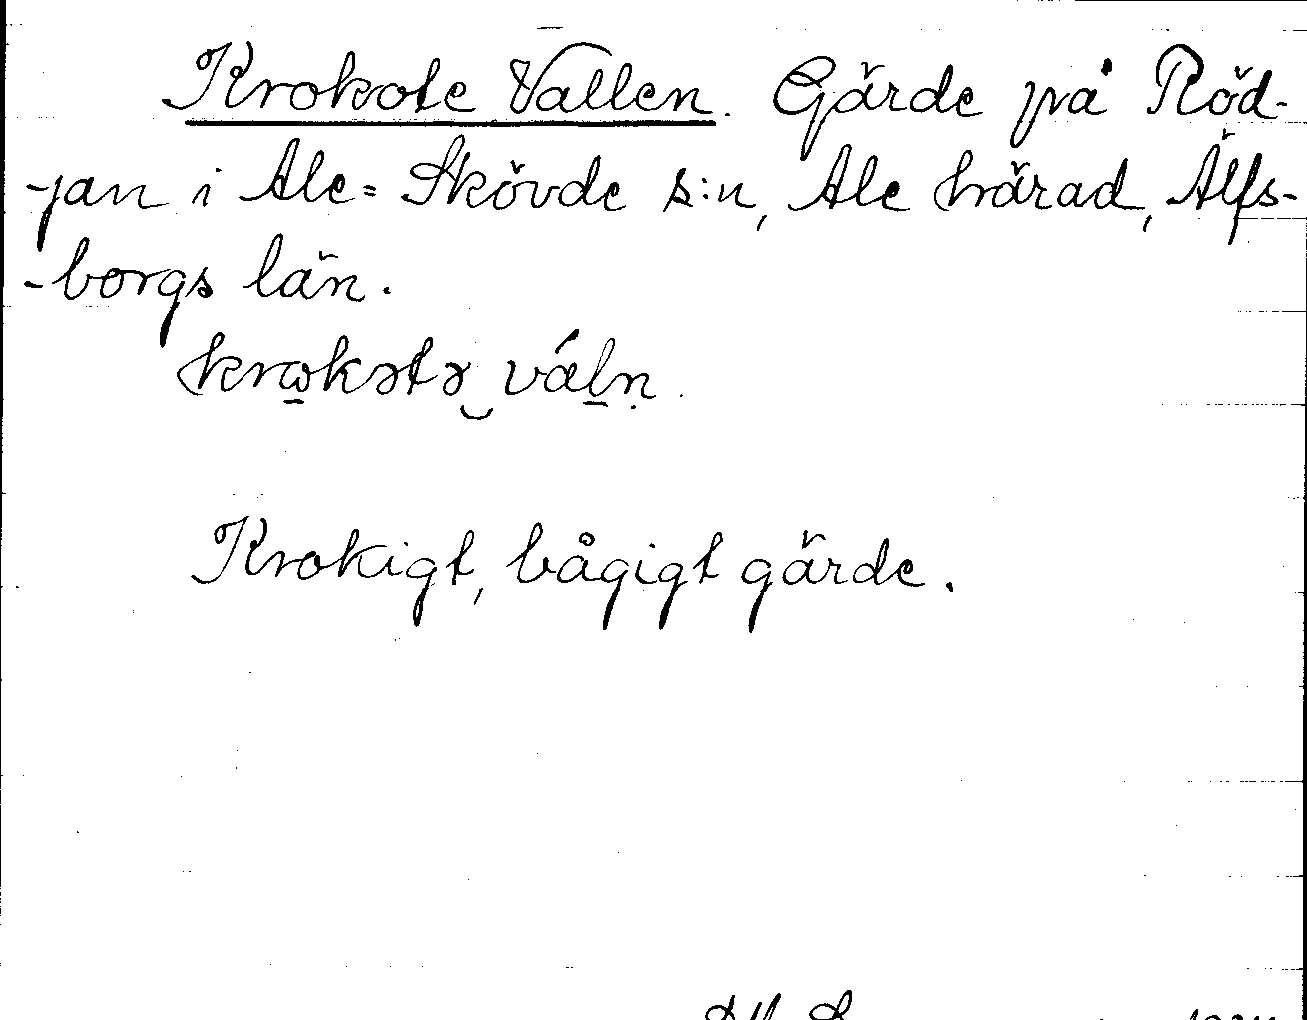 Krokote Vallen. Gärde på Röd-
-jan i Ale=Skövde s:n, Ale härad, Älfs-
-borgs län.
krω̱kətə‿válṉ.
Krokigt, bågigt gärde.